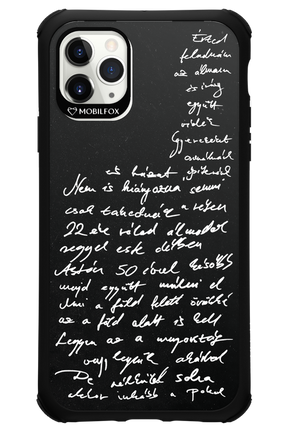 MOBILFOX
Érted
feladnám
az álmaim
és így
együtt
Gyerekeket
és házat építenék
Nem is hiányozna semmi
csak takaróznék a
22 éve rólad álmodok
reggel este délben
Aztán 50 évvel később
majd együtt múlni el
Ami a föld felett örökké
az a föld alatt is kell
Legyen az a mennyország
vagy legyünk akárhol
De nélküled soha
akkor inkább a pokol